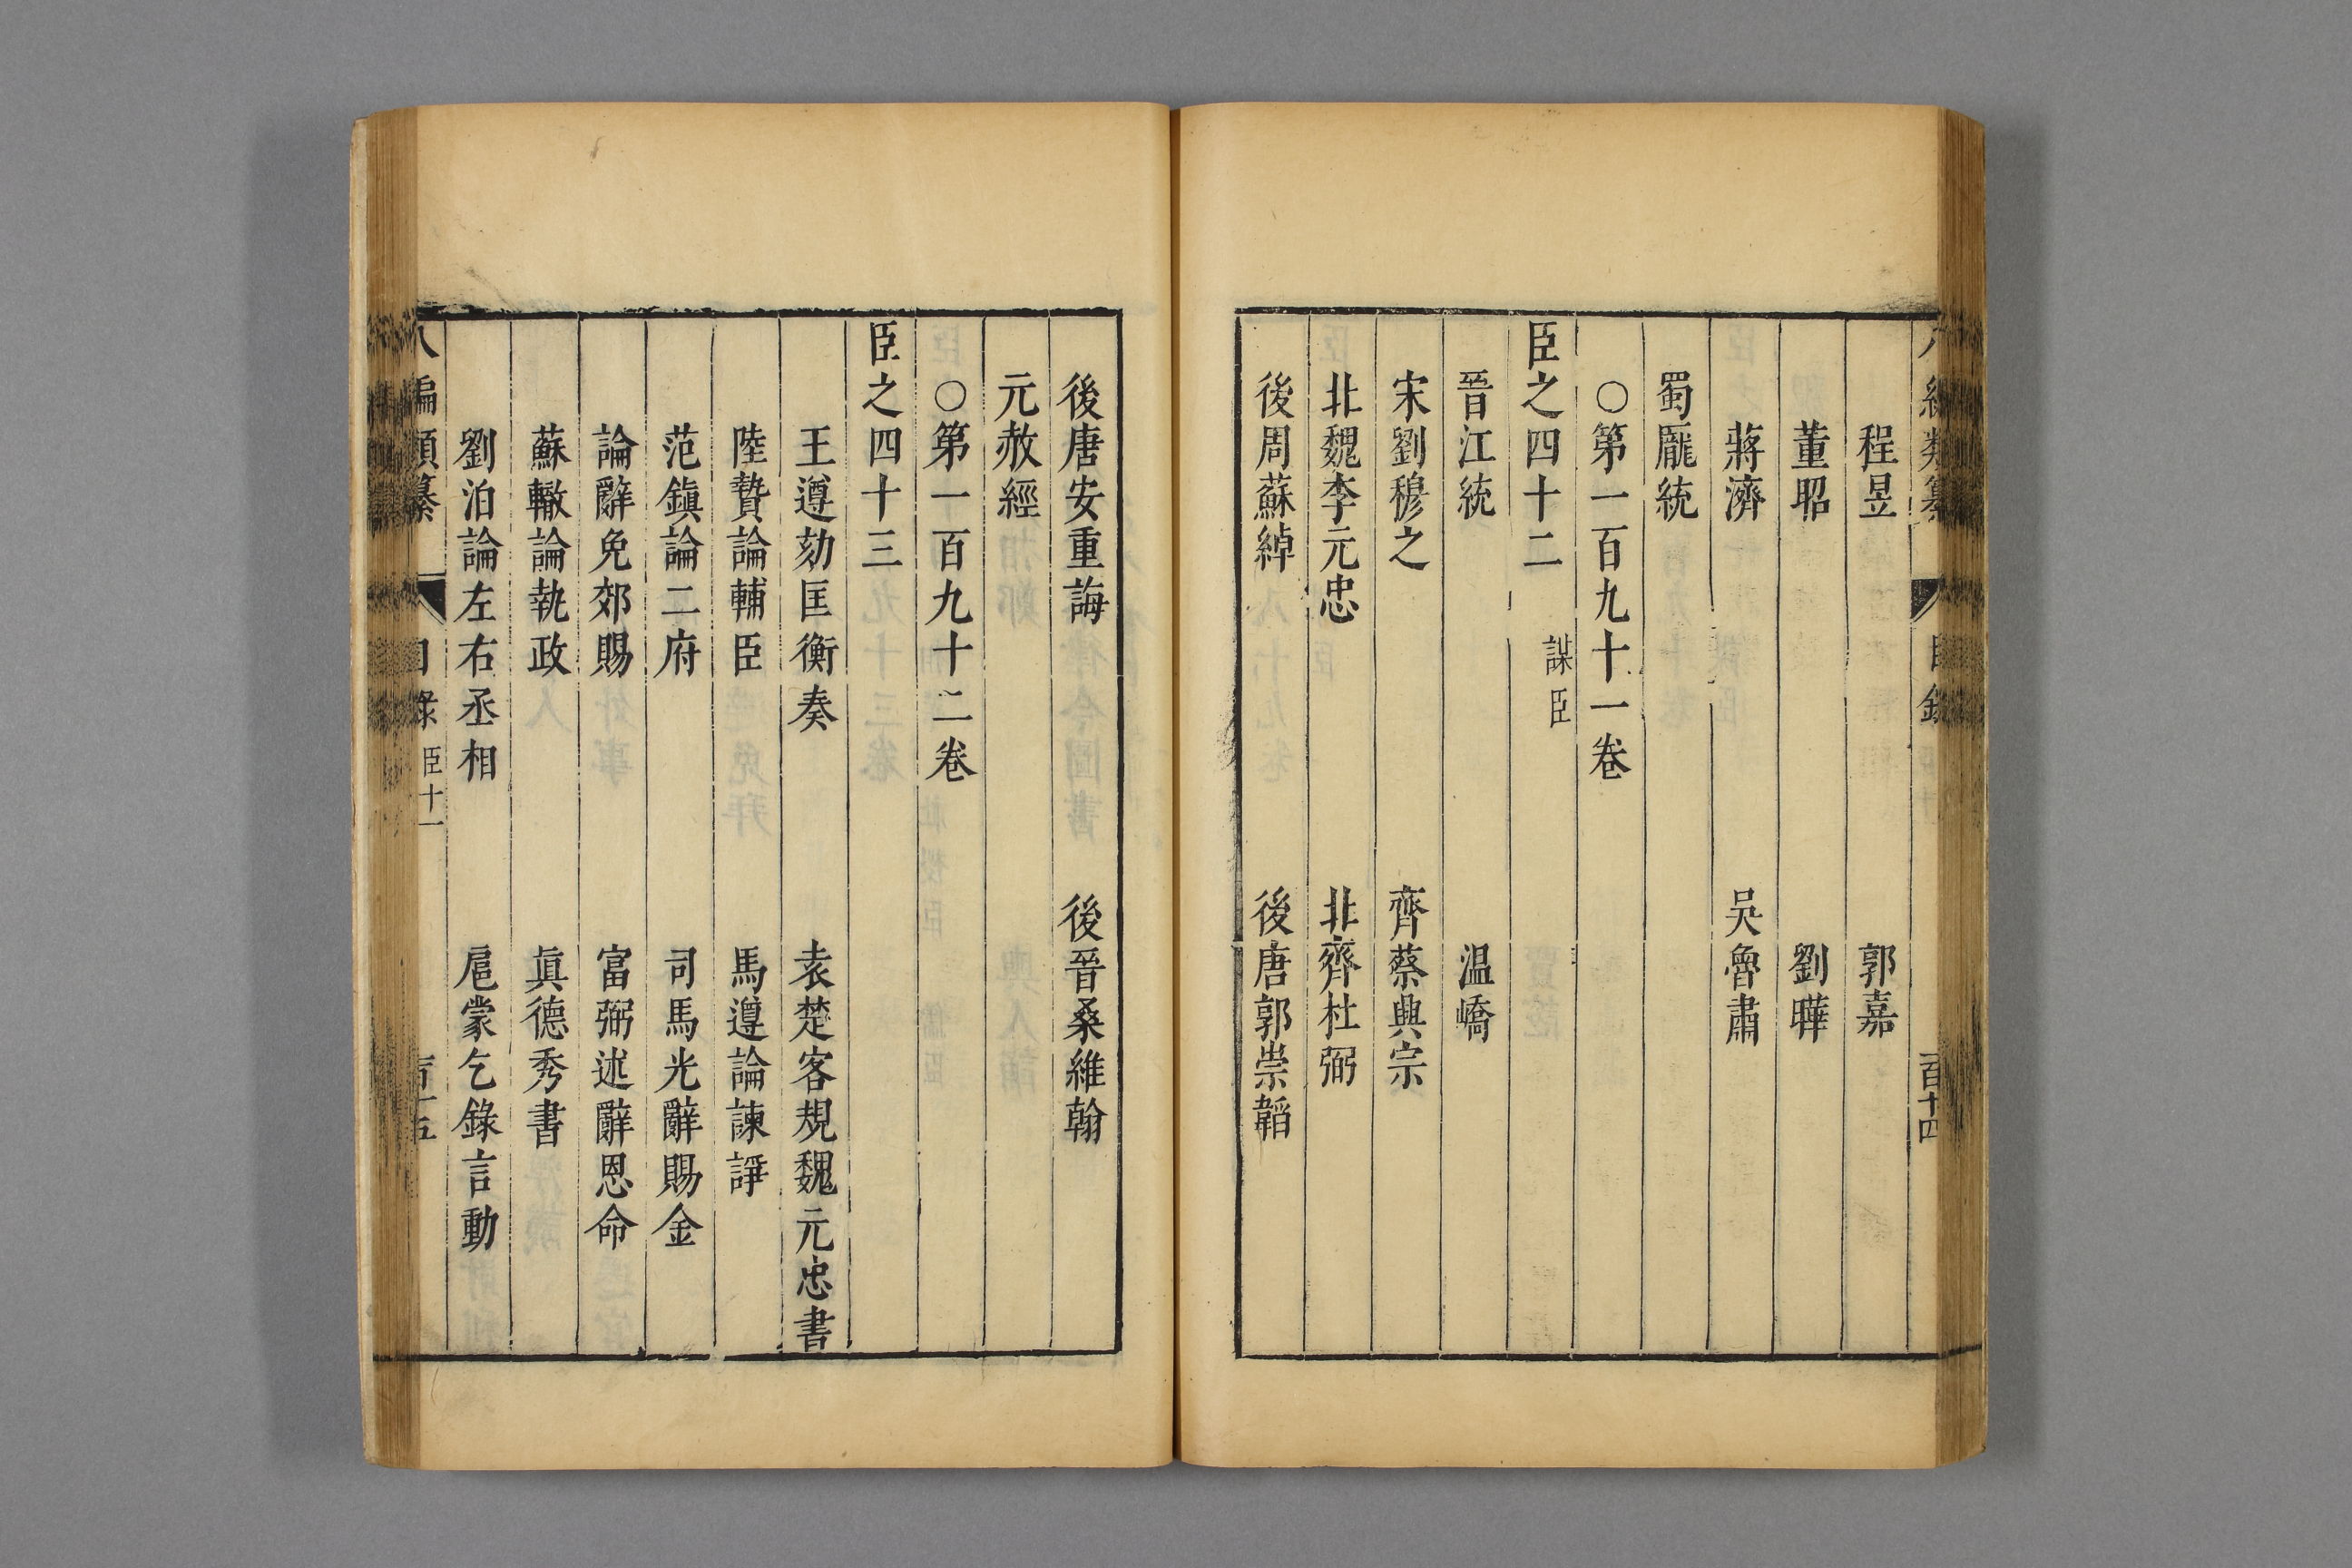 程昱 郭嘉
董昭 劉曄
蔣濟 吳魯肅
蜀龐統
○第一百九十一卷
臣之四十二 謀臣
晉江統 温嶠
宋劉穆之 齊蔡興宗
北魏李元忠 北齊杜弼
後周蘇綽 後唐郭崇韜
後唐安重誨 後晉桑維翰
元赦經
○第一百九十二卷
臣之四十三
王遵劾匡衡奏 袁楚客規魏元忠書
陸贄論輔臣 馬遵論諫諍
范鎭論二府 司馬光辭賜金
論辭免郊賜 富弼述辭恩命
蘇轍論執政 眞德秀書
劉洎論左右丞相 扈蒙乞錄言動
八編類纂 目錄 臣十一 百十五